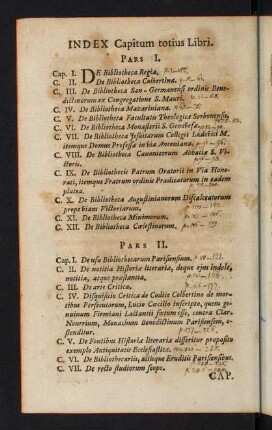 INDEX Capitum totius Libri.
PARS I.
Cap. I. DE Bibliotheca Regia,
C. II. De Bibliotheca Colbertina.
C. III. De Bibliotheca San-Germanensi ordinis Bene-
dictinorum ex Congregatione S. Mauri.
C. IV. De Bibliotheca Mazariniana.
C. V. De Bibliotheca Facultatis Theologicæ Sorbonensis.
C. VI. De Bibliotheca Monasterii S. Genovefæ.
C. VII. De Bibliotheca Jesuitarum Collegii Ludovici M.
itemque Domus Professæ in via Antoniana.
C. VIII. De Bibliotheca Canonicorum Abbatiæ S. Vi-
ctoris.
C. IX. De Bibliothecis Patrum Oratorii in Via Hono-
rati, itemque Fratrum ordinis Prædicatorum in eadem
platea.
C. X. De Bibliotheca Augustinianorum Discalceatorum
prope viam Victoriarum.
C. XI. De Bibliotheca Minimorum.
C. XII. De Bibliotheca Cœlestinorum.
PARS II.
Cap. I. De usu Bibliothecarum Parisiensium.
C. II. De notitia Historiæ literariæ, deque ejus indole,
notitia, atque præstantia.
C. III. De arte Critica.
C. IV. Disquisitio Critica de Codice Colbertino de mor-
tibus Persecutorum, Lucio Cæcilio inscripto, quod ge-
nuinum Firmiani Lactantii fœtum esse, contra Clar.
Nourrium, Monachum Benedictinum Parisiensem, o-
stenditur.
C. V. De Fontibus Historiæ literariæ disseritur proposito
exemplo Antiquitatis Ecclesiasticæ.
C. VI. De Bibliothecariis, aliisque Eruditis Parisiensibus.
C. VII. De recto studiorum scopo.
CAP.